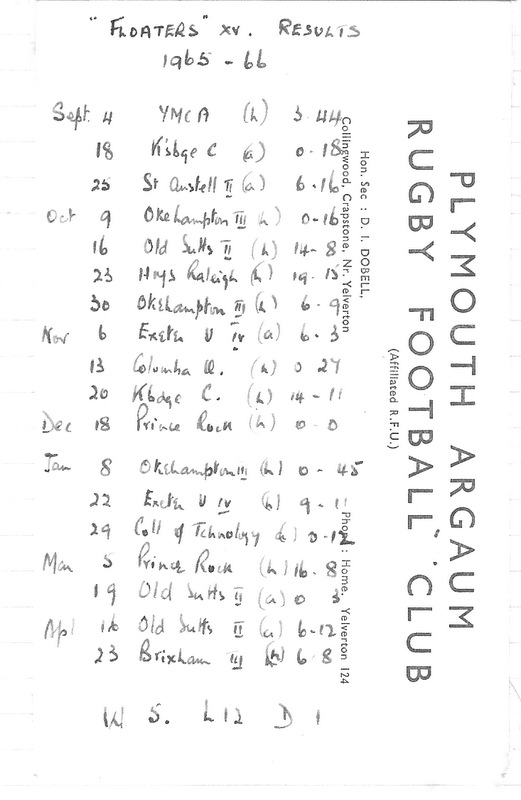 "FLOATERS" XV. RESULTS
1965 - 66
Sept. 4 YMCA (h) 3 44
18 K'sbge C (a) 0-18
25 St Austell II (a) 6-16
Oct 9 Okehampton III (h) 0-16
16 Old Sutts II (h) 14-8
23 Hmys Raleigh (h) 19-13
30 Okehampton III (h) 6-9
Nov 6 Exeter U IV (a) 6-3
13 Columba O. (h) 0 27
20 Kbdge C. (h) 14-11
Dec 18 Prince Rock (h) 0-0
Jan 8 Okehampton III (h) 0-45
22 Exeter U IV (h) 9-11
29 Coll of Tchnology (h) 0-12
Mar 5 Prince Rock (h) 16-8
19 Old Sutts II (a) 0 3
Apl 16 Old Sutts II (a) 6-12
23 Brixham III (h) 6 8
W 5. L 12 D 1
PLYMOUTH ARGAUM
RUGBY FOOTBALL CLUB
(Affiliated R.F.U.)
Hon. Sec : D. I. DOBELL,
Collingwood, Crapstone, Nr. Yelverton
Phone : Home, Yelverton 124